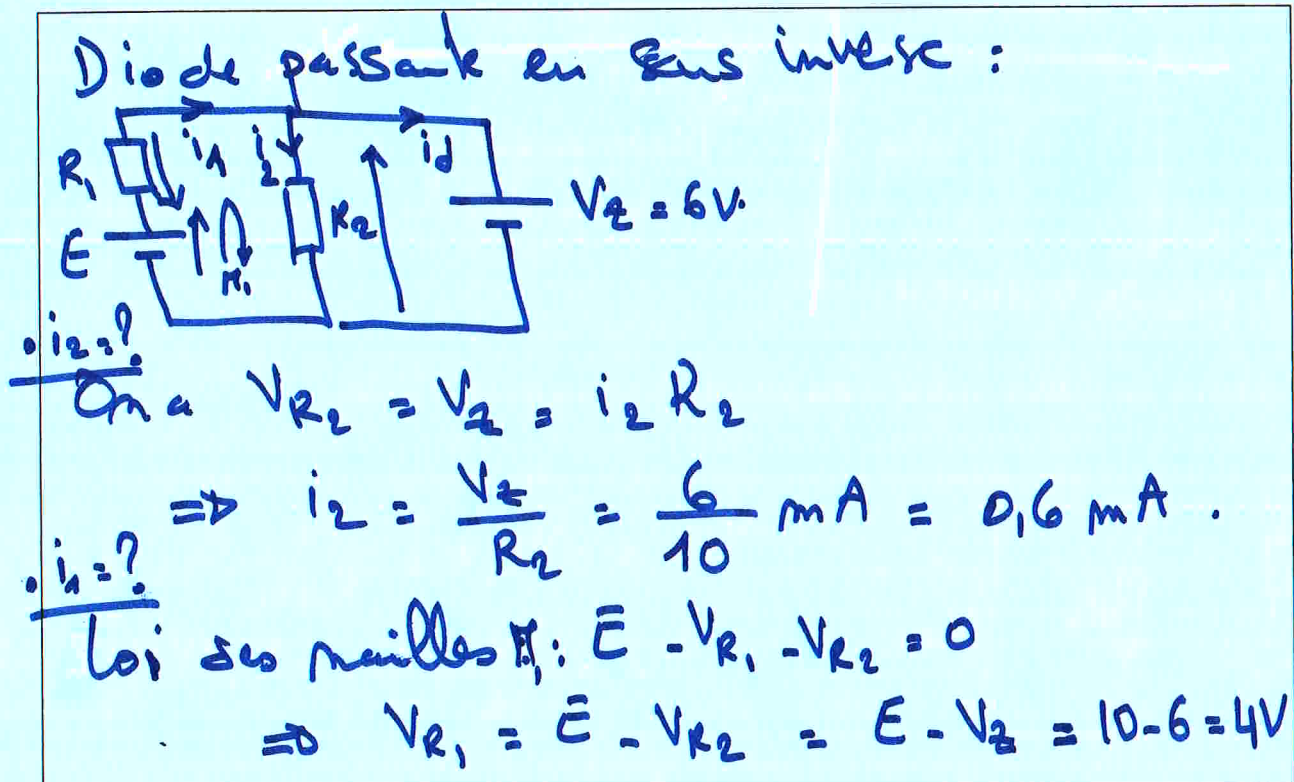 Diode passante en sens inverse :
R₁ i₁ i₂ R₂ id V_Z = 6V.
E M₁
. i₂ = ?
On a V_R₂ = V_Z = i₂ R₂
=> i₂ = V_Z / R₂ = 6 / 10 mA = 0,6 mA .
. i₁ = ?
Loi des mailles M₁ : E - V_R₁ - V_R₂ = 0
=> V_R₁ = E - V_R₂ = E - V_Z = 10 - 6 = 4V